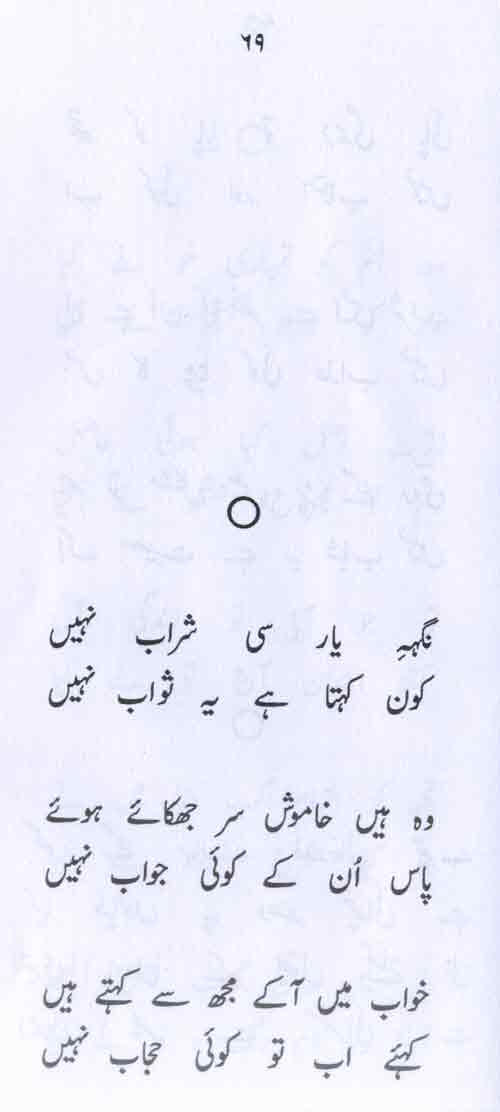 ۶۹
نگہہِ یار سی شراب نہیں
کون کہتا ہے یہ ثواب نہیں
وہ ہیں خاموش سر جھکائے ہوئے
پاس اُن کے کوئی جواب نہیں
خواب میں آکے مجھ سے کہتے ہیں
کہئے اب تو کوئی حجاب نہیں